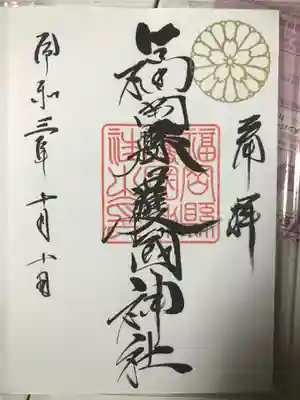 奉拝
福岡縣護國神社
福岡縣
護國神
社之印
令和三年十月